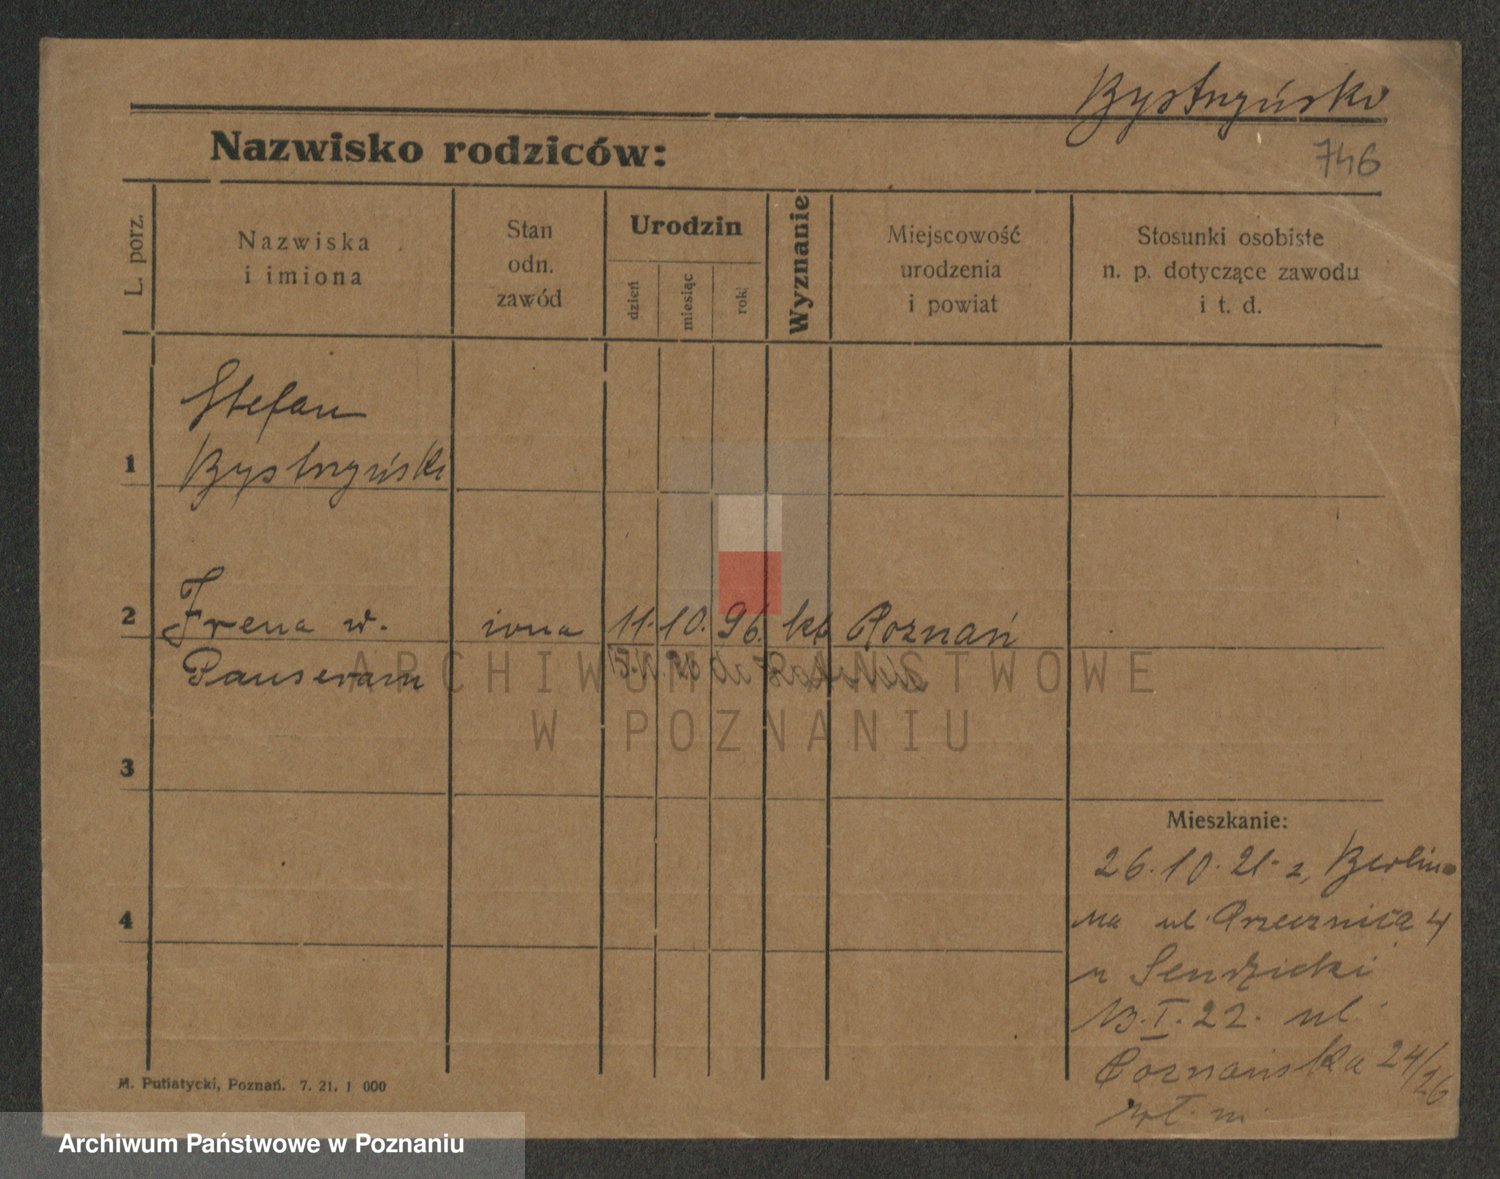 Bystrzyński
746
Nazwisko rodziców:
L. porz.
Nazwiska
i imiona
Stan
odn.
zawód
Urodzin
dzień
miesiąc
rok
Wyznanie
Miejscowość
urodzenia
i powiat
Stosunki osobiste
n. p. dotyczące zawodu
i t. d.
Stefan
1 Bystrzyński
2 Irena w. żona 11. 10. 96. kt Poznań
ARCHIWUM PAŃSTWOWE
W POZNANIU
3
Mieszkanie:
26.10.21 z, Berlina
na ul. Przecznica 4
u Sendzicki
13.I.22. ul
Poznańska 24/26
4
M. Putiatycki, Poznań. 7. 21. 1 000
Archiwum Państwowe w Poznaniu